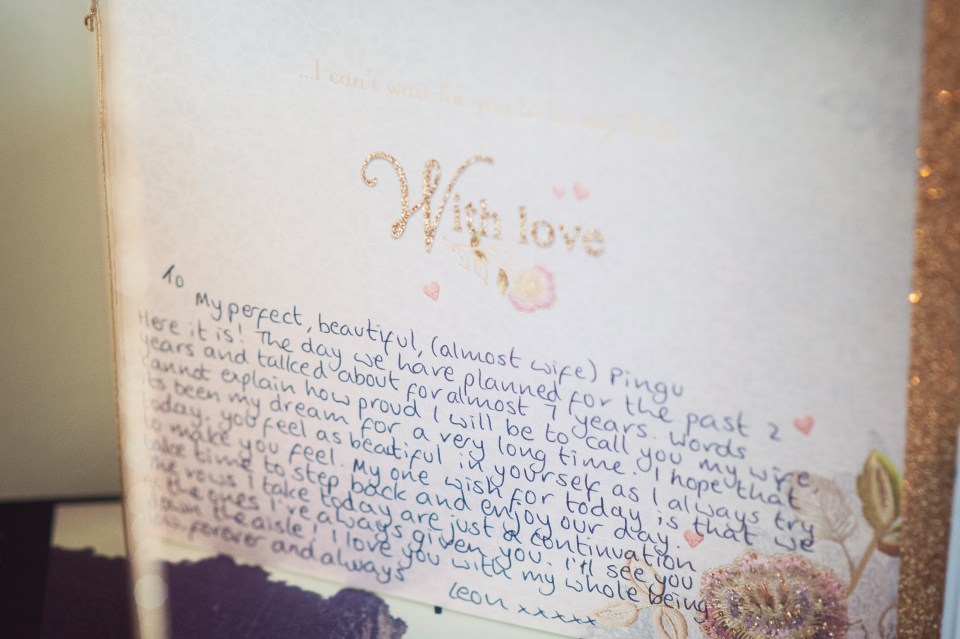 ...I can't wait for you to be my
With love
To
My perfect, beautiful, (almost wife) Pingu
Here it is! The day we have planned for the past 2
years and talked about for almost 7 years. Words
cannot explain how proud I will be to call you my wife,
its been my dream for a very long time. I hope that
today, you feel as beautiful in yourself as I always try
to make you feel. My one wish for today is that we
take time to step back and enjoy our day.
The vows I take today are just a continuation
of the ones I've always given you. I'll see you
down the aisle, I love you with my whole being
forever and always
Leon xxxxx